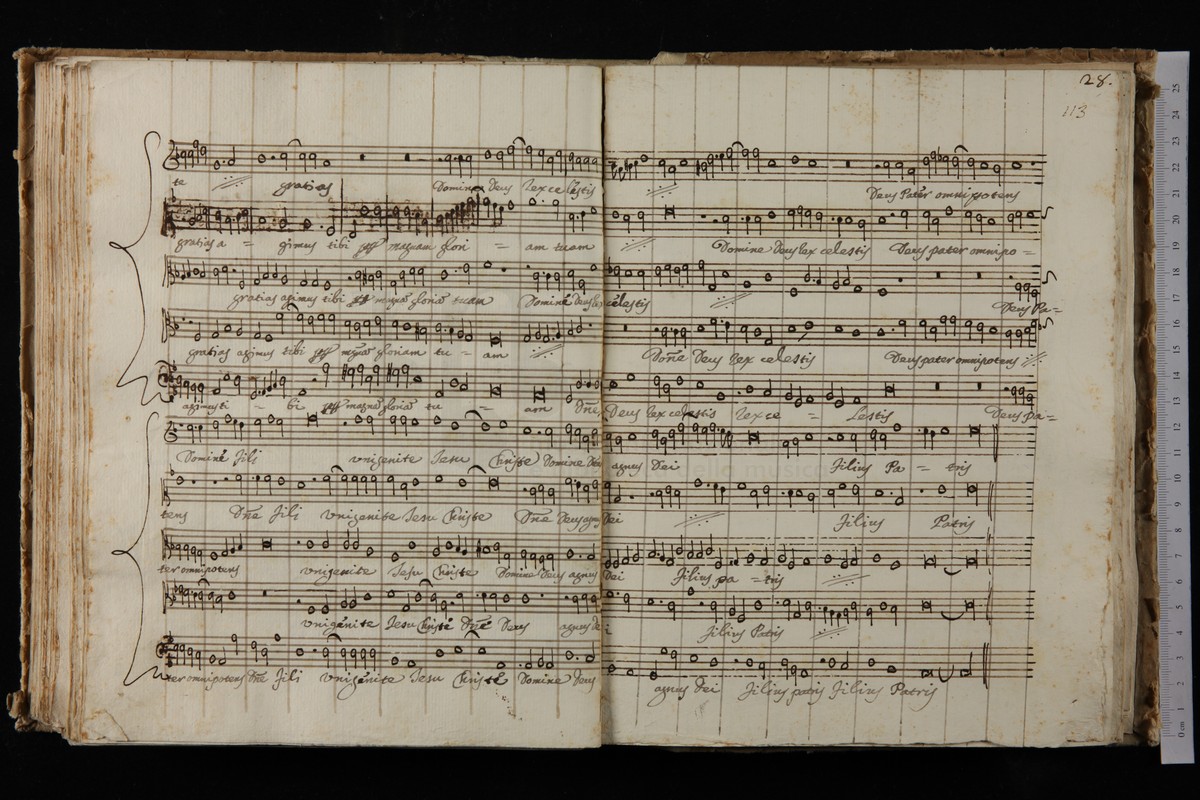 28.
113
te gratias Domine Deus Rex celestis Deus Pater omnipotens
gratias a = gimus tibi magnam glori = am tuam Domine Deus Rex celestis Deus pater omnipo =
gratias agimus tibi gloriã tuam Domine Deus Rex celestis Deus Pa =
gratias agimus tibi gloriam tu = am Dõne Deus Rex celestis Deus pater omnipotens
agimus ti = bi magnã gloriã tu = am Dñe Deus Rex celestis Rex ce = lestis Deus pa =
Domine Fili vnigenite Iesu Christe Domine Deus agnus Dei Filius Pa = tris
tens Dñe Fili vnigenite Iesu Christe Dñe Deus agnus Dei Filius Patris
ter omnipotens vnigenite Iesu Christe Domine Deus agnus Dei Filius pa = tris
vnigenite Iesu Christe Dñe Deus agnus dei Filius Patris
ter omnipotens Dñe Fili vnigenite Iesu Christe Domine Deus agnus Dei Filius patris Filius Patris